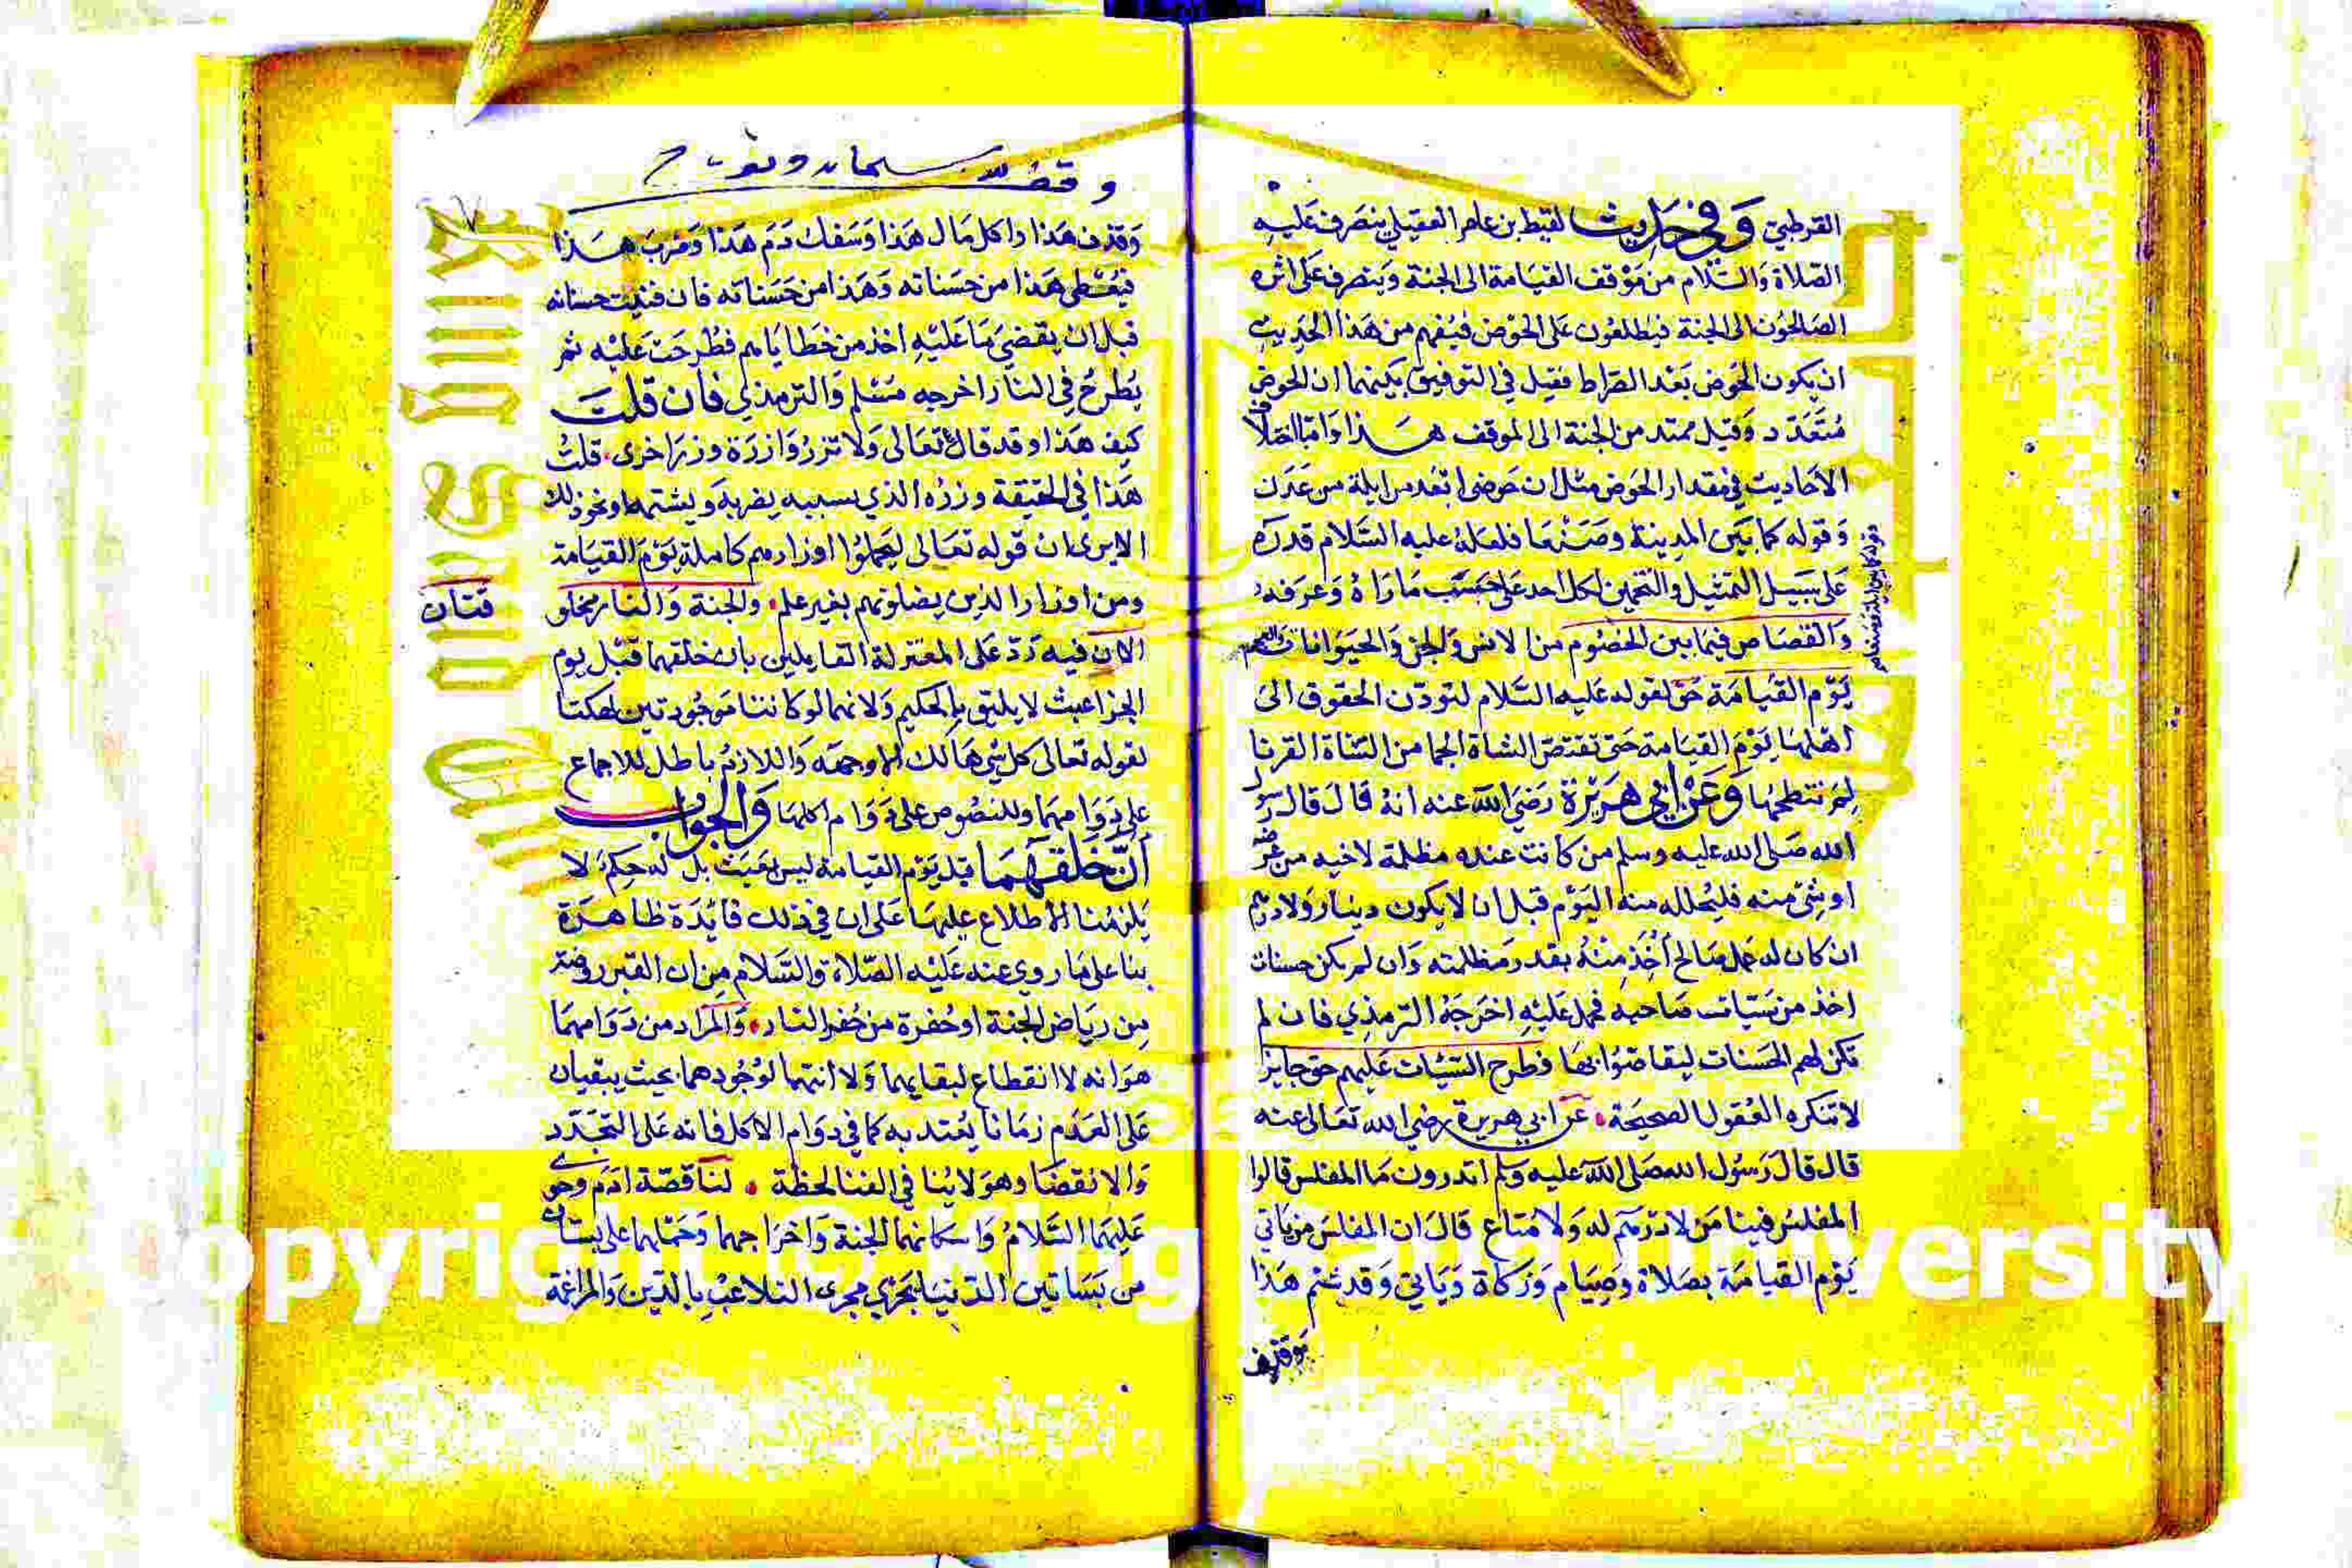 القرطبي وَفي حَديث لقيط بن عامر العقيلي ينصرف عَليه
الصّلاة وَالسّلام من مَوْقف القيامة الى الجنة وَينصرف عَلى اثره
الصَالحُون الى الجنة فيطلعُون عَلى الحَوْض فيُفهم من هَذا الحَديث
ان يكون الحَوض بَعْد الصّراط فقيل في التوفيق بَينهما ان الحوض
مُتَعَدّد وَقيل ممتد من الجنة الى الموقف هـذا وَامّا اختلاف
الاحَاديث في مقدار الحَوض مثل ان حَوضى ابعَد من ايلة من عَدَن
وَقوله كما بَين المدينة وصَنعَا فلعَله عليه السَّلام قدره
عَلى سَبيل التمثيل والتخمين لكل احد عَلى حَسَب مَا رَاهُ وَعَرَفه
وَالقصَاص فيمَا بين الخصُوم من الانس وَالجن وَالحيَوانات
يَوْم القيَامَة حَق لقوله عَليه السَّلام لتودّن الحقوق الى
اهلهَا يَوْم القيَامة حَتى تقتصّ الشاة الجما من الشاة القرنا
لم نتطحهَا وَعَنْ ابي هَرَيْرَة رَضيَ الله عنه انهُ قالَ قال رسول
الله صَلى الله عليه وسلم من كانت عنده مظلمة لاخيه من عرضه
او شئ منه فليُحلله منه اليَوْم قبل ان لا يكون دينار وَلا درهم
ان كان له عَمل صَالح اُخِذَ مِنْهُ بقدر مَظلمته وَان لم يكن حسنات
اخذ من سَيّات صَاحبه فحمل عَليْه اخرَجَهُ الترمذي فان لم
تكن لهم الحَسَنات ليقاصّوُا بهَا فطرح السّيّات عَليهم حق جايز
لا تنكره العُقول الصحيحَة. عَن ابي هريرة رضي الله تعَالى عنه
قال قالَ رَسُول الله صَلى الله عَليه وَسَلم اتدرون مَا المفلس قالوا
المفلسُ فينا مَن لا درْهَم له وَلا مَتاع قالَ ان المفلسَ من يَاتي
يَوْم القيامَة بصَلاة وصِيَام وَزَكاة وَيَاتي وَقد شتم هَذا
وَقذف
وَقذف هَذا وَاكل مَالَ هَذا وَسَفك دَمَ هَذا وَضربَ هـذا
فيُعْطى هَذا من حَسَناته وَهَذا من حَسَناته فان فنيت حسناته
قبل ان يقضيَ مَا عَليْه اخذ من خطايَاهم فطُرحَت عَليْه ثم
يُطرَحُ في النار اخرجه مُسْلم وَالترمذي فان قلت
كيف هَذا وقد قال تعَالى وَلا تزرُ وَازرَة وزرَ اخرى. قلتُ
هَذا في الحَقيقة وزرُه الذي بسببه يضربه وَيشتمه وَنحو ذلك
الا يرى ان قوله تعَالى ليَحملوا اوزارهم كاملة يَوْمَ القيَامة
ومن اوزار الذين يضلونهم بغير علم. وَالجنة وَالنار مخلوقتان
الان فيه رَدّ عَلى المعتزلة القايلين بان خلقهما قبل يوم
الجزا عبث لا يليق بالحكيم وَلانهما لو كانتا مَوجُودتين لهلكتا
لقوله تعَالى كل شئ هَالك الا وجهَه وَاللازمُ باطل للاجماع
على دَوَامهمَا وللنصُوص على دَوَام اكلهَا وَالجوابُ
أنّ خَلقَهُمَا قبل يَوم القيامة ليسَ بعَبَث بل له حِكم لا
يَلزمُنا الاطلاع عليهَا عَلى ان في ذلك فايْدَة ظاهرَة
بنا على مَا روي عنه عَليْه الصّلاة وَالسَّلام من ان القبر روضة
مِن ريَاض الجنة او حُفرة من حُفر النار. وَالمرَاد من دَوَامهمَا
هوَ انه لا انقطاع لبقايهما وَلا انتها لوُجُودهما بحيث يبقيان
عَلى العَدَم زمَانا يُعتد به كمَا في دوَام الاكل فانه عَلى التجَدّد
وَالانقضَا وهوَ لا يُنا في الفنا لحظة. لنا قصّة ادَم وحوى
عَليهمَا السَّلامُ وَاسكانهما الجنة وَاخرَاجهما وَحَمْلهَا على بستان
من بَسَاتين الدّنيَا يَجْري مجرى التلاعُب بالدّين وَالمراغمة
Copyright © King Saud University